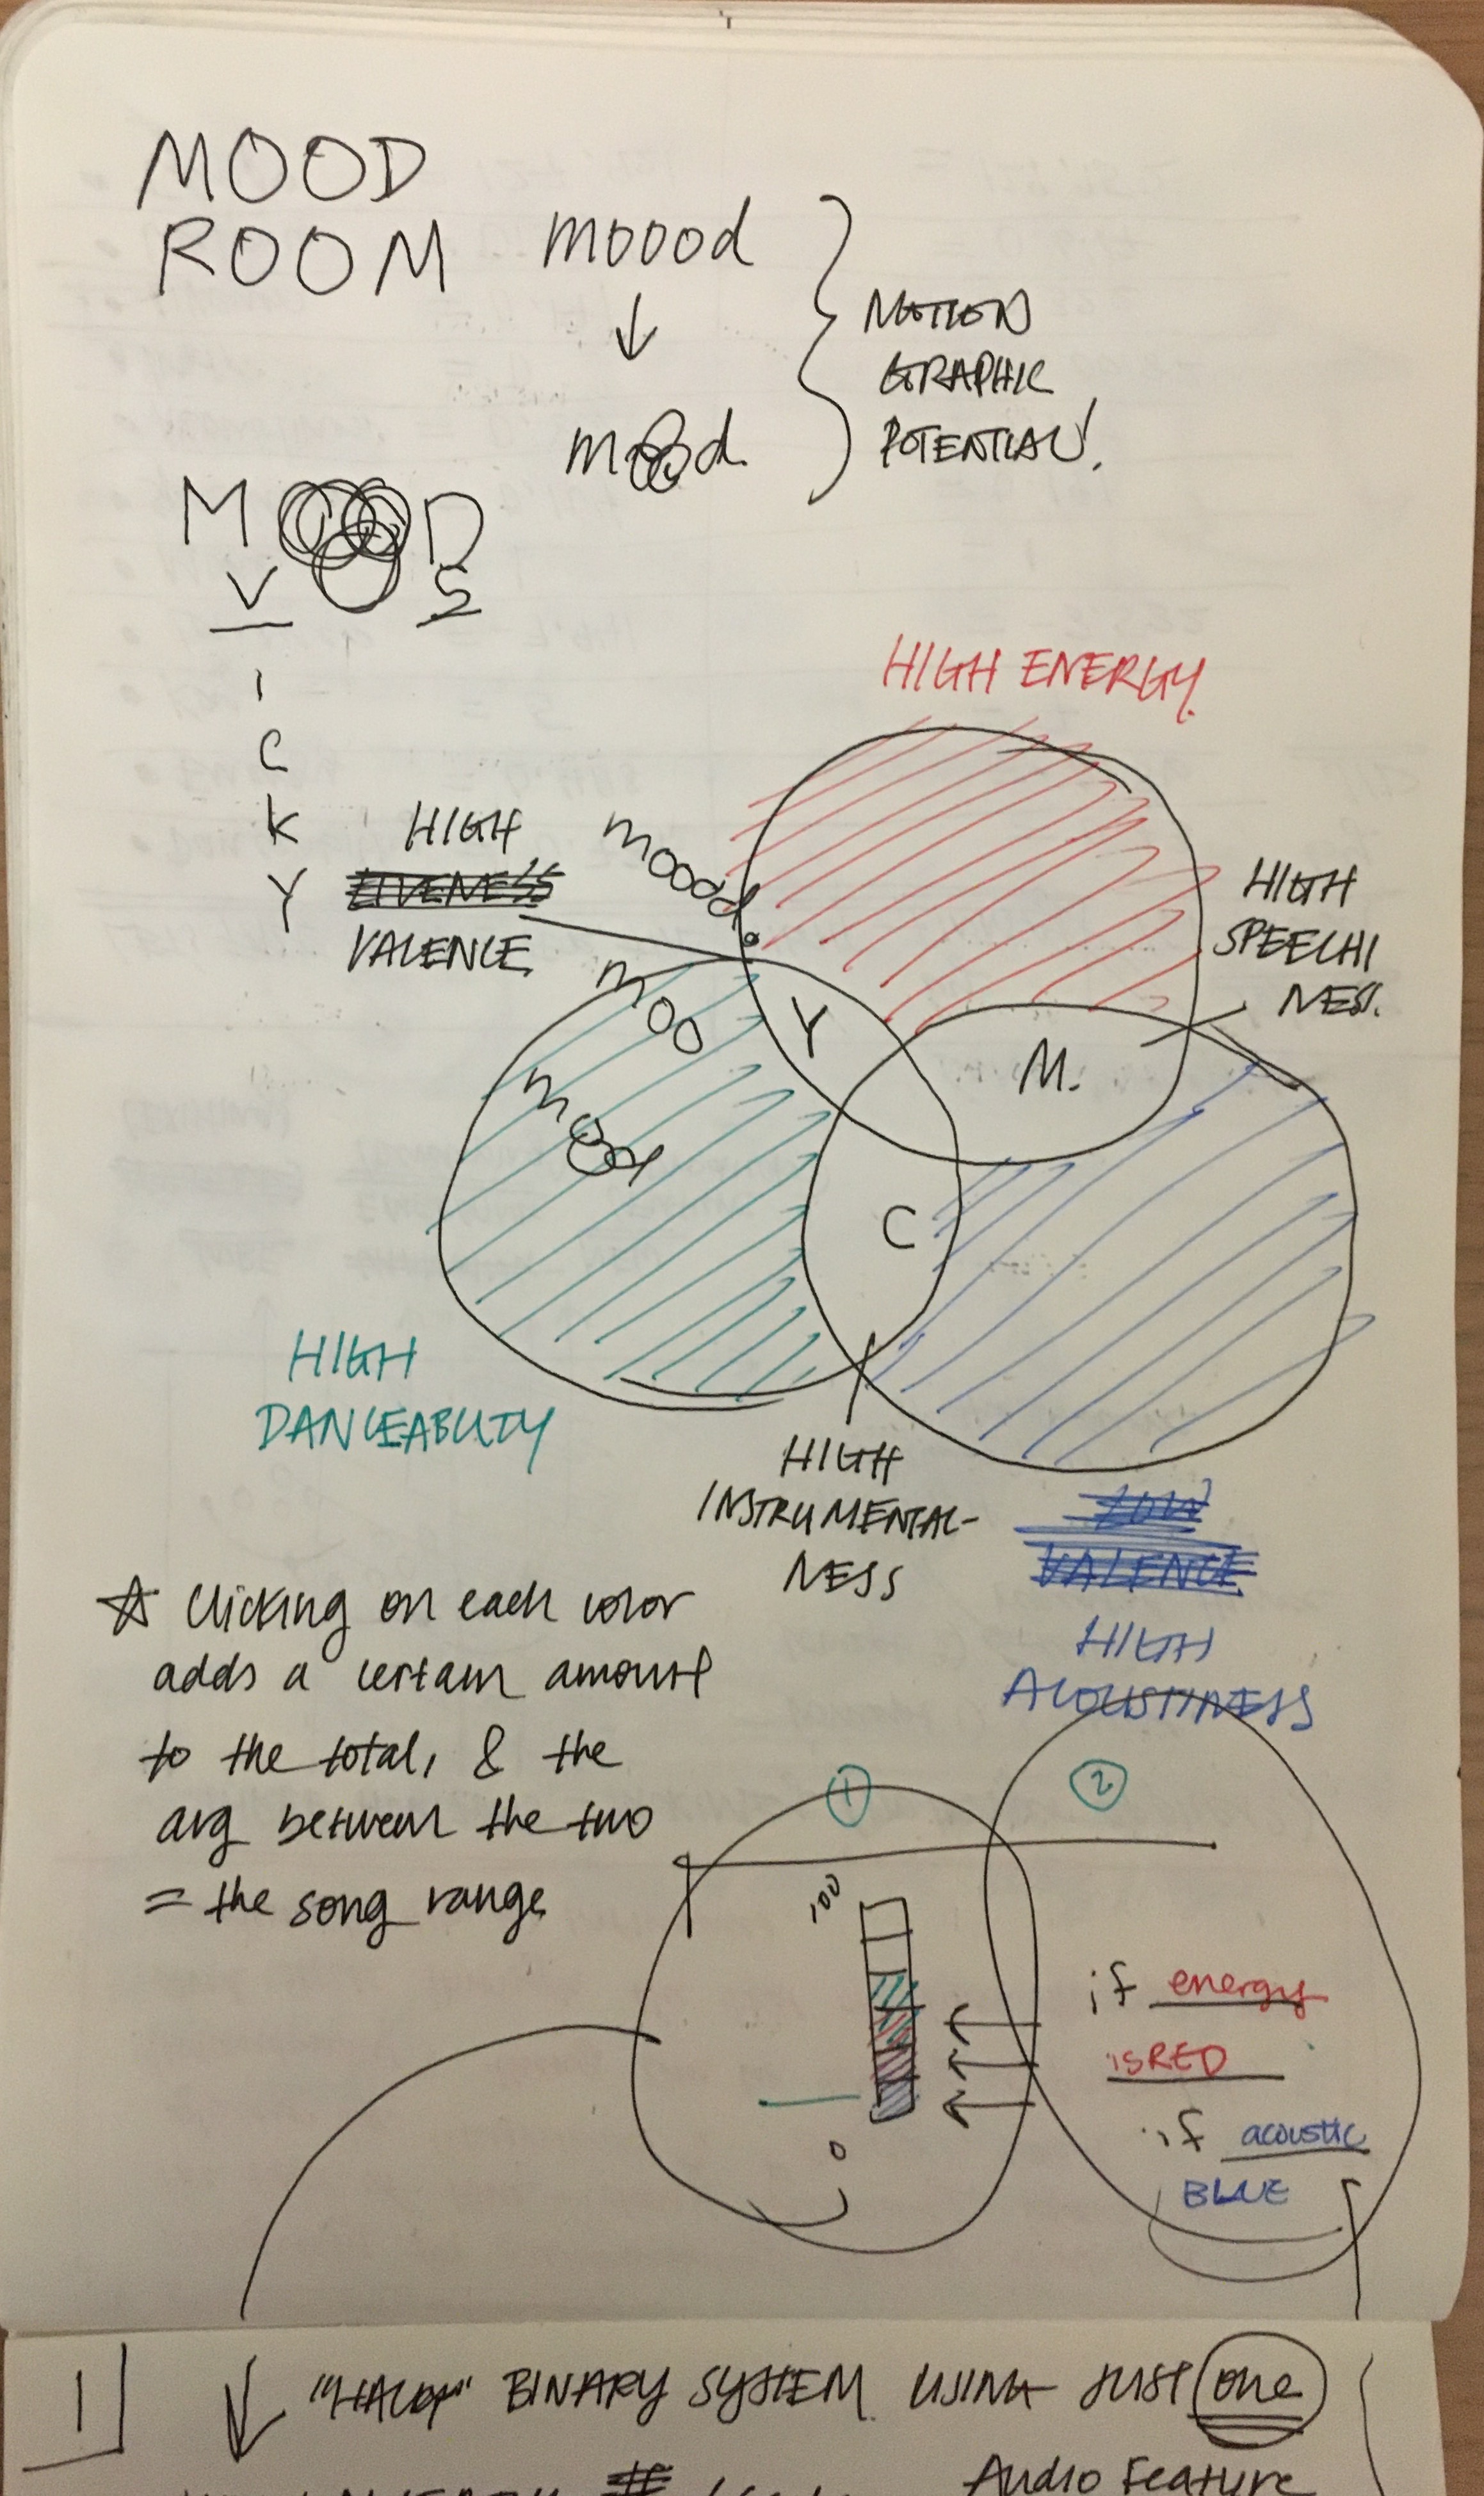 MOOD
ROOM
moood
↓
moood
MOTION
GRAPHIC
POTENTIAL!
MOOOD
V S
I
C
K
Y
HIGH ENERGY
HIGH
LIVENESS
VALENCE
moood.
moo
mood
HIGH
SPEECHI
NESS.
Y
M.
C
HIGH
DANCEABLITY
HIGH
INSTRUMENTAL-
NESS
LOW
VALENCE
HIGH
ACOUSTINESS
☆ Clicking on each color
adds a certain amount
to the total, & the
avg between the two
= the song range
1
2
100
0
if energy
is RED
if acoustic
BLUE
1
↓ BINARY SYSTEM USING JUST one
Audio Feature